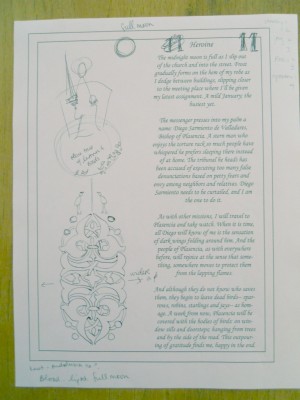 full moon
11 Heroine 11
The midnight moon is full as I slip out
of the church and into the street. Frost
gradually forms on the hem of my robe as
I dodge between buildings, slipping closer
to the meeting place where I'll be given
my latest assignment. A mild January, the
busiest yet.
The messenger presses into my palm a
name: Diego Sarmiento de Valladares,
Bishop of Plasencia. A stern man who
enjoys the torture rack so much people have
whispered he prefers sleeping there instead
of at home. The tribunal he heads has
been accused of executing too many false
denunciations based on petty fears and
envy among neighbors and relatives. Diego
Sarmiento needs to be curtailed, and I am
the one to do it.
As with other missions, I will travel to
Plasencia and take watch. When it is time,
all Diego will know of me is the sensation
of dark wings folding around him. And the
people of Plasencia, as with everywhere
before, will rejoice at the sense that some-
thing, somewhere moves to protect them
from the lapping flames.
And although they do not know who saves
them, they begin to leave dead birds - spar-
rows, robins, starlings and jays - as hom-
age. A week from now, Plasencia will be
covered with the bodies of birds: on win-
dow sills and doorsteps, hanging from trees
and by the side of the road. This outpour-
ing of gratitude finds me, happy in the end
full moon